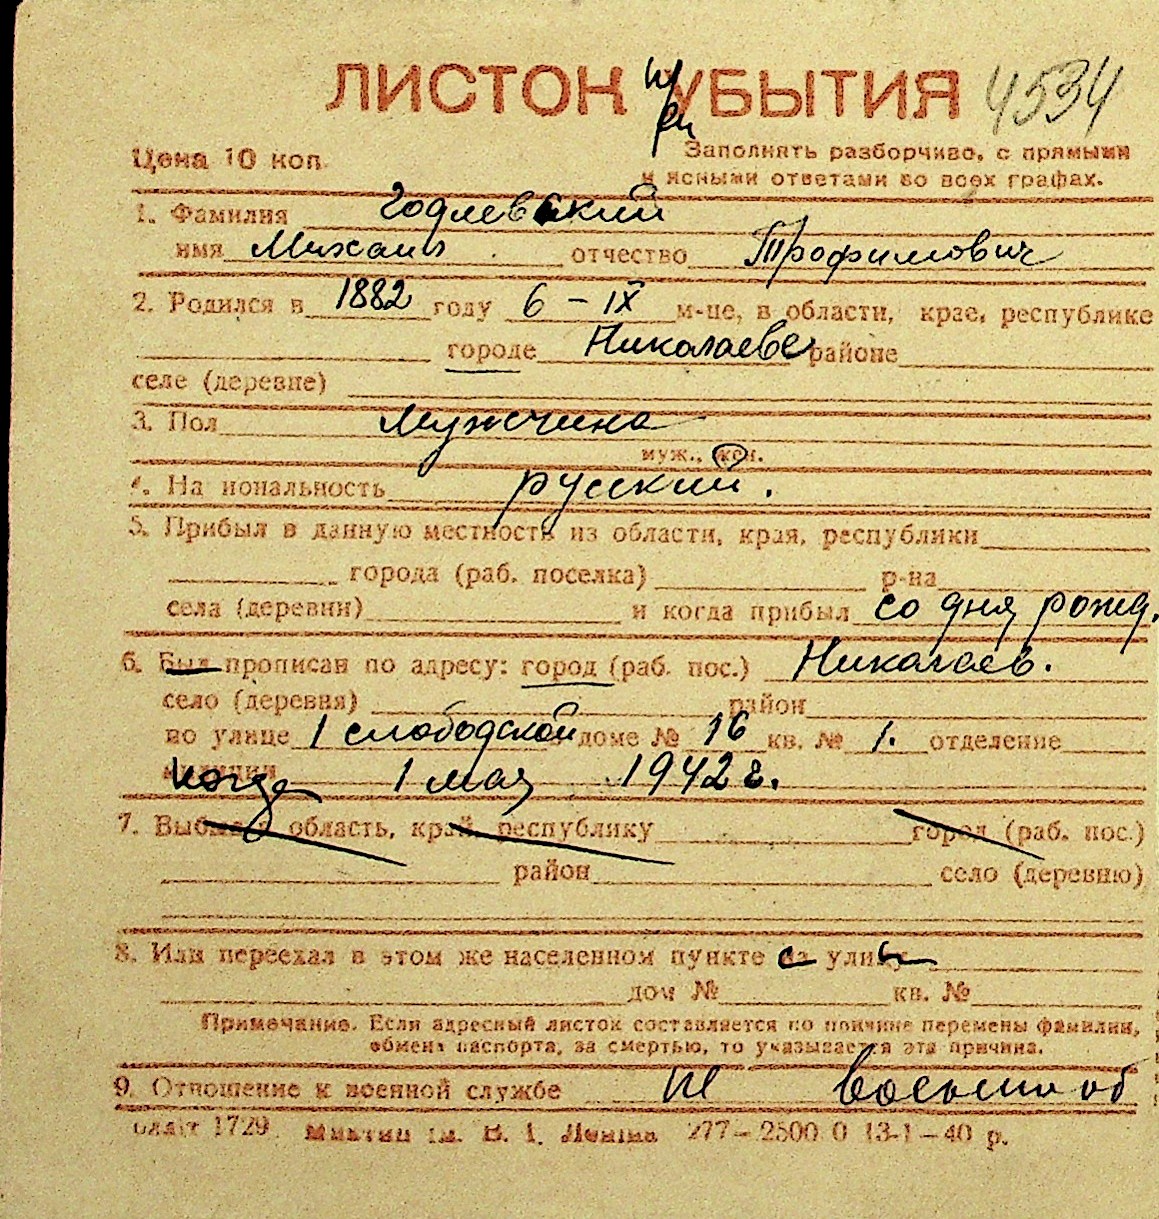 ЛИСТОК УБЫТИЯ 4534
при
Цена 10 коп.
Заполнять разборчиво, с прямыми
и ясными ответами во всех графах.
1. Фамилия Годлевский
имя Михаил отчество Трофимович
2. Родился в 1882 году 6 – IX м-це, в области, крае, республике
городе Николаеве районе
селе (деревне)
3. Пол мужчина
муж., жен.
4. Национальность русский.
5. Прибыл в данную местность из области, края, республики
города (раб. поселка) р-на
села (деревни) и когда прибыл со дня рожд.
6. Был прописан по адресу: город (раб. пос.) Николаев.
село (деревня) район
по улице 1 слободской доме № 16 кв. № 1. отделение
милиции когда 1 мая 1942 г.
7. Выбыл в область, край, республику город (раб. пос.)
район село (деревню)
8. Или переехал в этом же населенном пункте с улицы
дом № кв. №
Примечание. Если адресный листок составляется по причине перемены фамилии,
обмена паспорта, за смертью, то указывается эта причина.
9. Отношение к военной службе
1729 им. В. И. Ленина 277–2500 0 13-1–40 р.